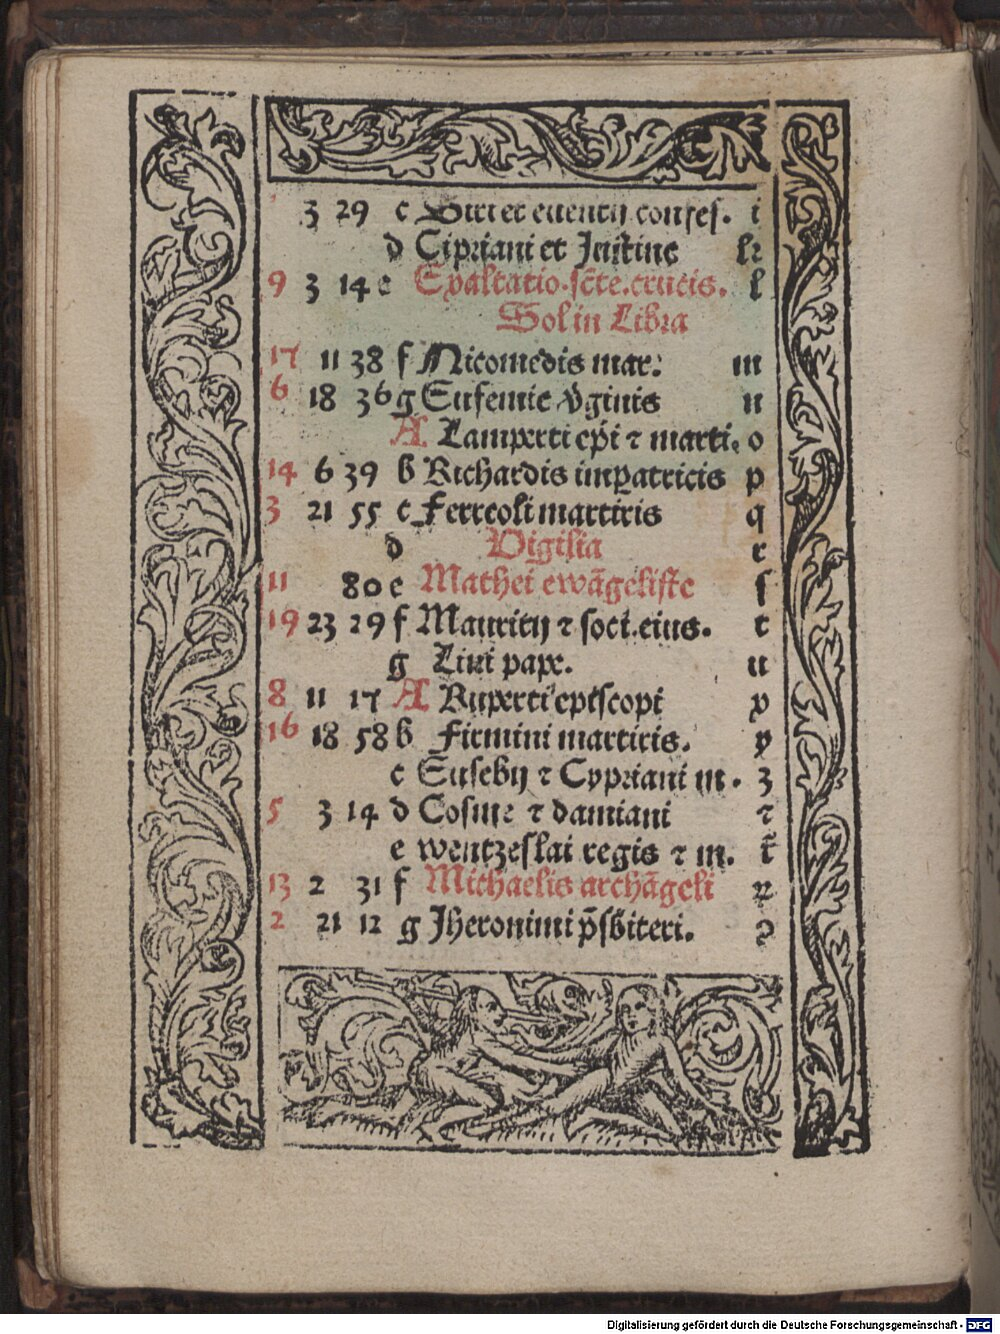 3 29 c Siri et euentij confes. i
d Cipriani et Justine k
9 3 14 e Exaltatio. sc̄te. crucis. l
Sol in Libra
17 11 38 f Nicomedis mar: m
6 18 36 g Eufemie v̓ginis n
A Lamperti ep̄i ⁊ marti. o
14 6 39 b Richardis imꝑatricis p
3 21 55 c Ferreoli martiris q
d Vigilia r
11 80 e Mathei ewāgeliste ſ
19 23 29 f Mauritij ⁊ soci. eius. t
g Lini pape. u
8 11 17 A Ruperti episcopi v
16 18 58 b Firmini martiris. y
c Eusebij ⁊ Cypriani m. z
5 3 14 d Cosme ⁊ damiani ⁊
e wentzeslai regis ⁊ m. t̄
13 2 31 f Michaelis archāgeli
2 21 12 g Jheronimi p̄sbiteri.
Digitalisierung gefördert durch die Deutsche Forschungsgemeinschaft - DFG